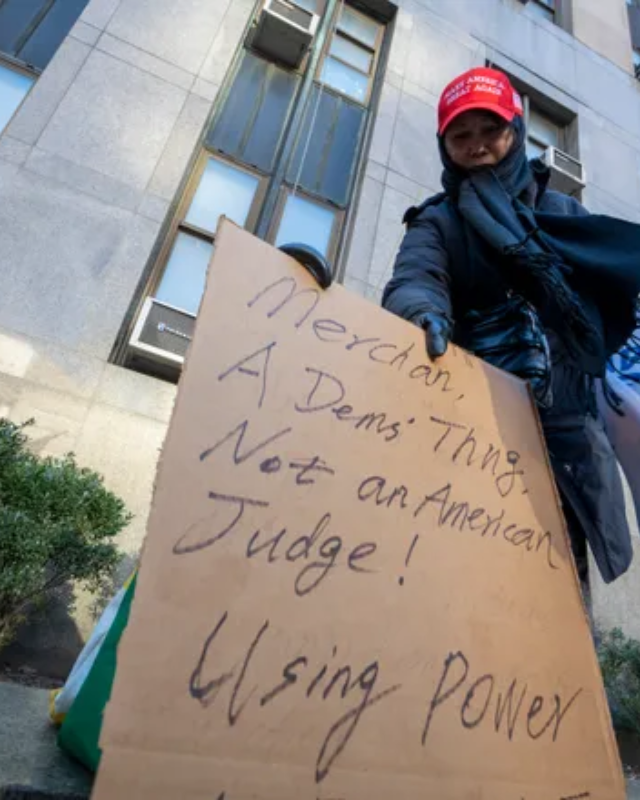 MAKE AMERICA
GREAT AGAIN
Merchan,
A Dems' Thng,
Not an American
Judge!
Using Power